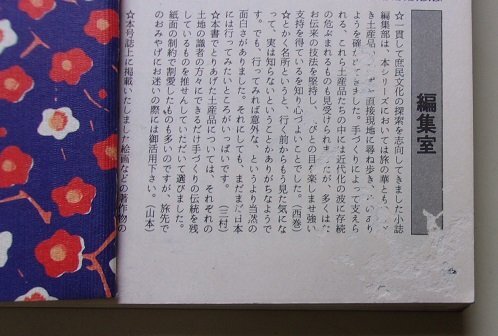 編集室
☆一貫して庶民文化の探索を志向してきました小誌
編集部は、本シリーズにおいては旅の華とも
き土産品、直接現地に尋ね歩き、
ようを確かてきました。手づくりによって支えら
れる、これら土産品たちの中には近代化の波に存続
の危ぶまれるものも見受けられましたが、多くはな
お伝来の技法を堅持し、びとの目を楽しませ強い
支持を得ているを知り心づよいことでした。（西巻）
☆とかく名所というと、行く前からもう見た気にな
って、実は知らないということがありがちなようで
す。でも、行ってみれば意外な、というより当然の
面白さがありました。それにしても、まだまだ日本
には行ってみたいところがいっぱいです。（三村）
☆本書でとりあげた土産品については、それぞれの
土地の識者の方々にできるだけ手づくりの伝統を残
しているものを推せんしていただいて選びました。
紙面の制約で割愛したものも多いのですが、旅先で
のおみやげにお迷いの際には御活用下さい。（山本）
☆本号誌上に掲載いたしました絵画などの著作物の